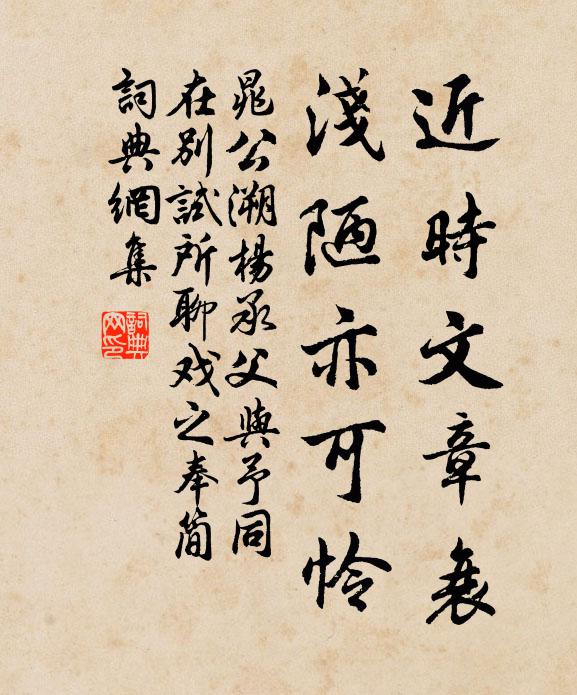 近時文章衰
淺陋亦可怜
晁公溯楊承父與予同
在别試所聊戏之奉简
詞典網集
詞典
网印